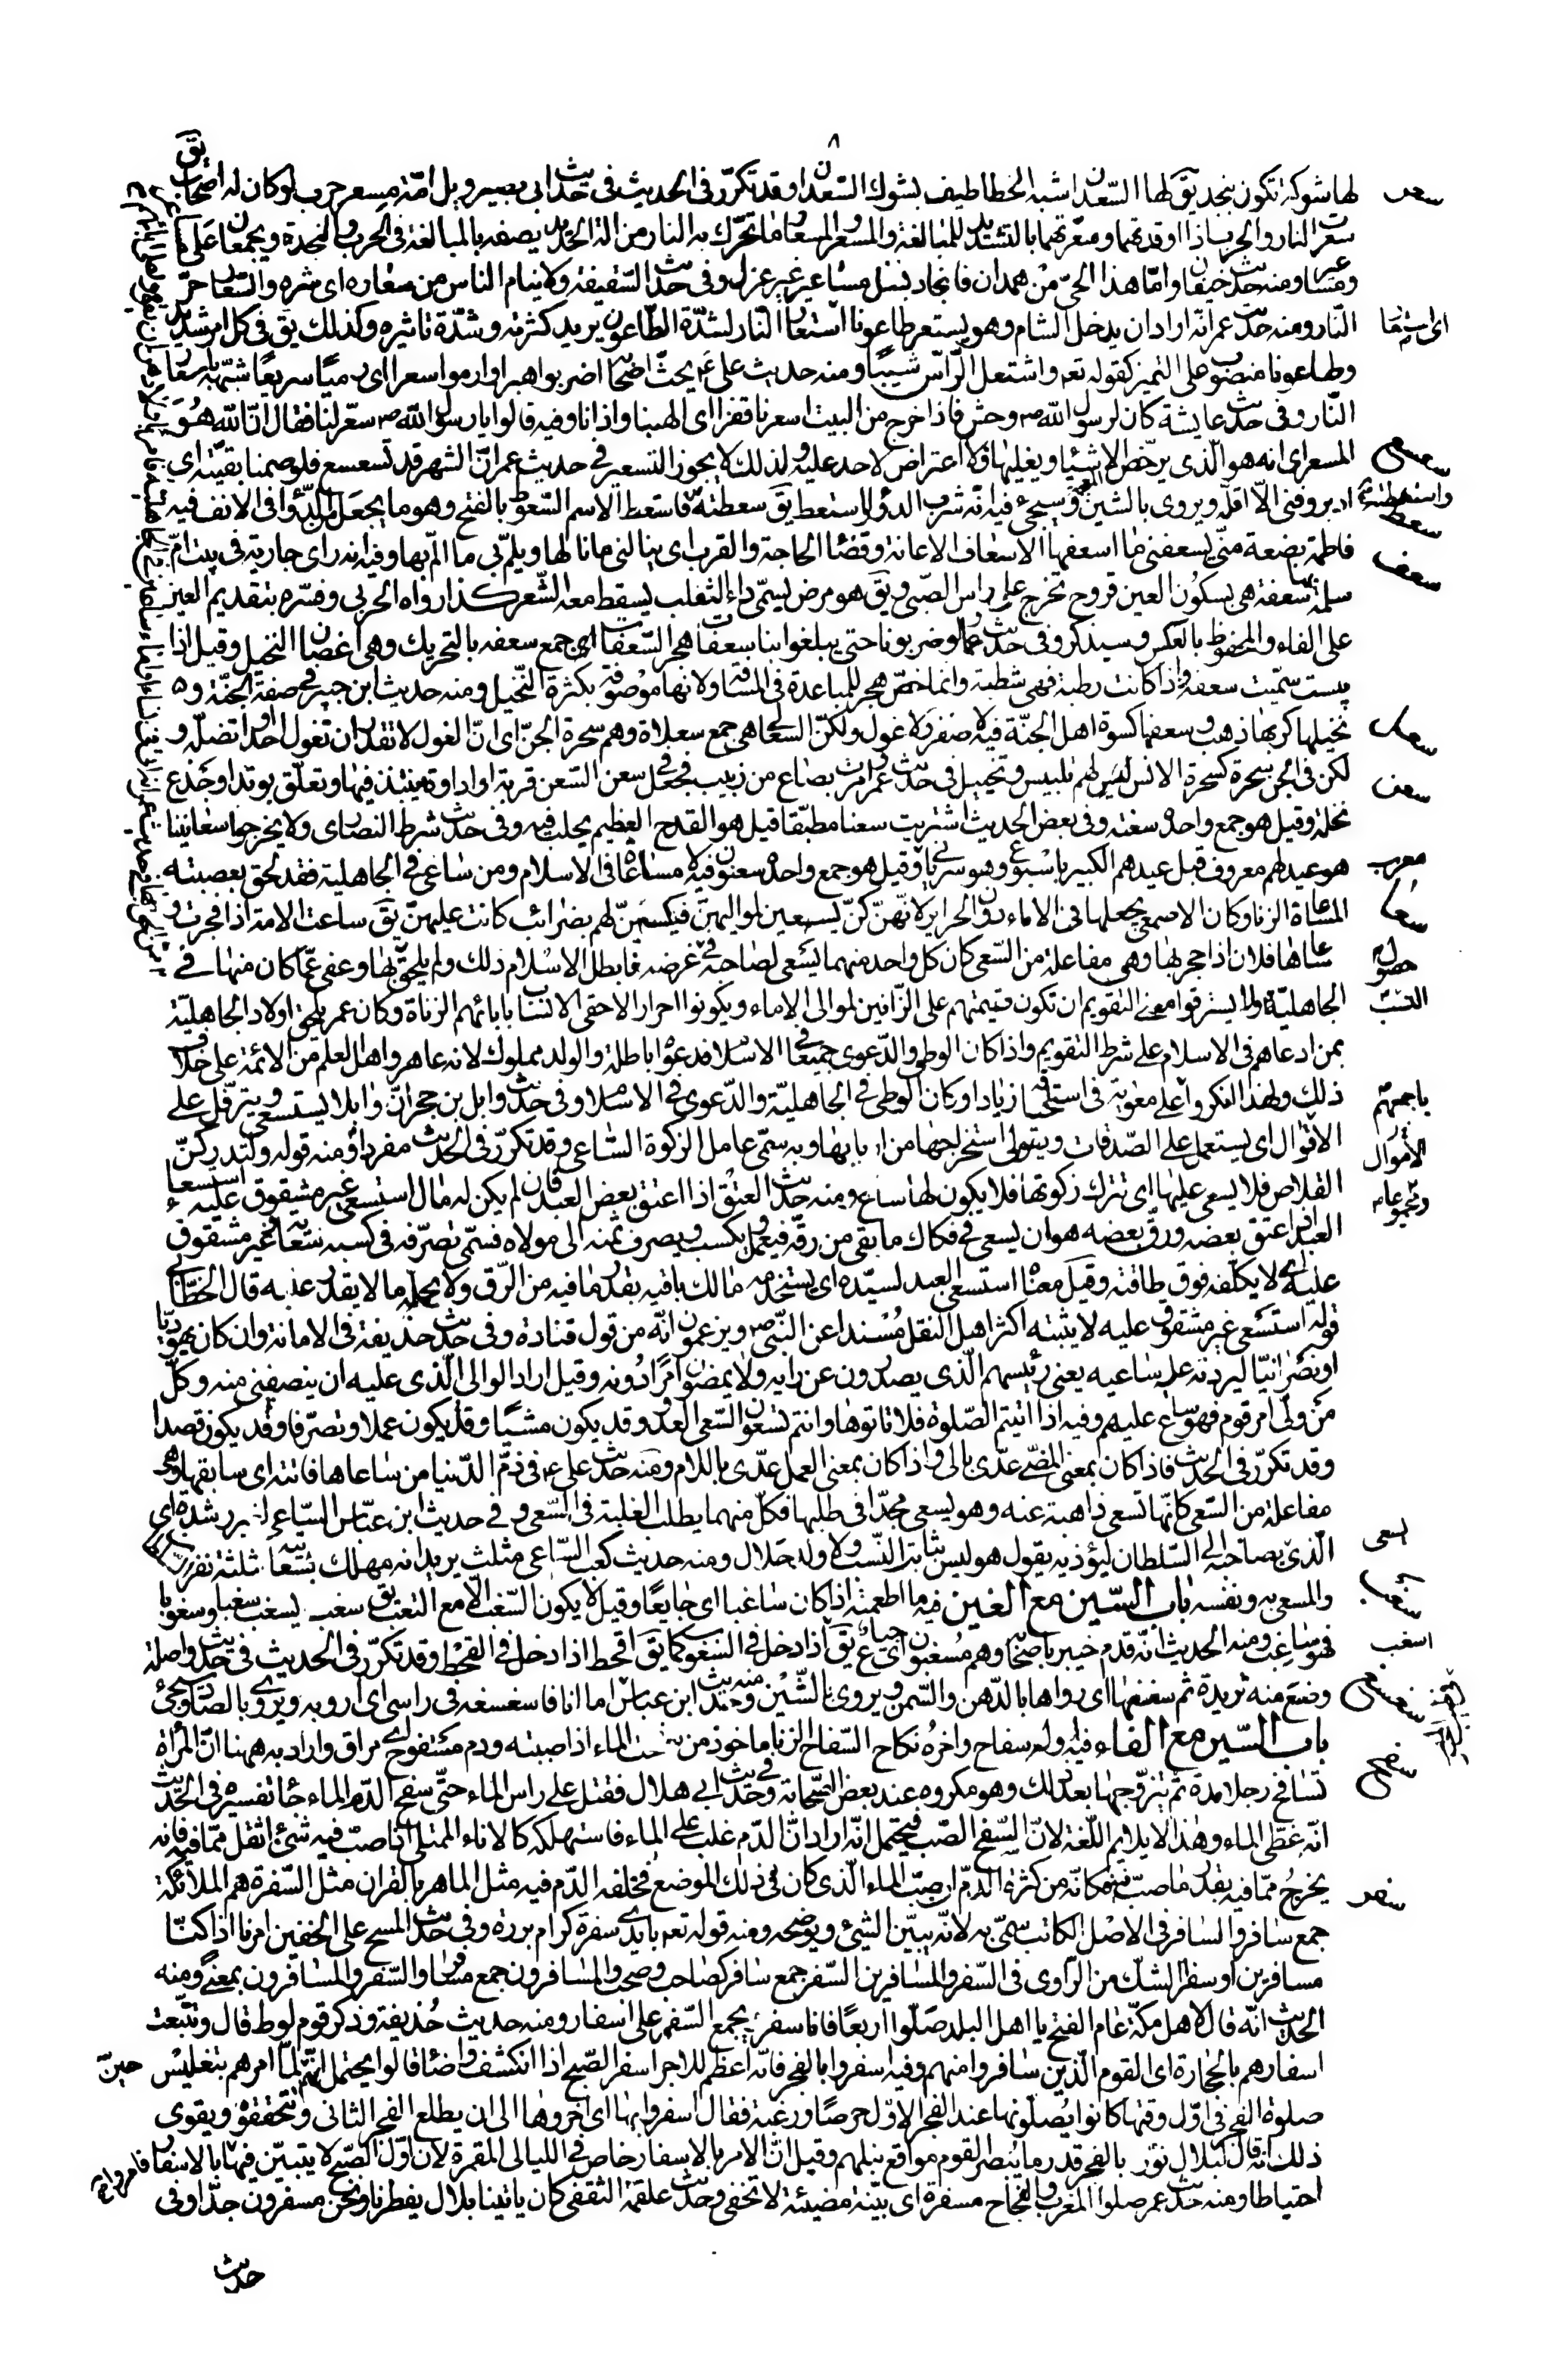 ٨
سعر
لها شوكة تكون بنجد يق لها السعدان شبه الخطاطيف بشوك السعدان وقد تكرر فى الحديث فى حديث ابى بصير ويل امه مسعر حرب لو كان له اصحاب يق
سعرت النار والحرب اذا اوقدتهما وسعرتهما بالتشديد للمبالغة والمسعر والمسعار ما تحرك به النار من الة الحديد يصفه بالمبالغة فى الحرب والنجدة ويجمعان على مساعر
ومساعير ومنه حديث خيفان واما هذا الحى من همدان فانجاد بسل مساعير غير عزل وفى حديث السقيفة ولا ينام الناس من سعاره اى شره والسعار حر
النار ومنه حديث عمر انه اراد ان يدخل الشام وهو يستعر طاعونا استعار النار لشدة الطاعون يريد كثرته وشدة تاثيره وكذلك يق فى كل امر شديد
وطاعونا منصوب على التميز كقوله تعه واشتعل الراس شيبا ومنه حديث على ع يحث اصحابه اضربوا هبرا وارموا سعرا اى رميا سريعا شبهه باستعار
النار وفى حديث عايشة كان لرسول الله ص وحش فاذا خرج من البيت اسعرنا قفزا اى الهبنا واذانا وفيه قالوا يا رسول الله ص سعر لنا فقال ان الله هو
المسعر اى انه هو الذى يرخص الاشياء ويغليها فلا اعتراض لاحد عليه ولذلك لا يجوز التسعير فى حديث عمر ان الشهر قد تسعسع فلو صمنا بقيته اى
ادبر وفنى الا اقله ويروى بالشين وسيجئ فيه انه شرب الدواء واستعط يق سعطته فاستعط الاسم السعوط بالفتح وهو ما يجعل من الدواء فى الانف فيه
فاطمة بضعة منى يسعفنى ما اسعفها الاسعاف الاعانة وقضاء الحاجة والقرب اى ينالنى ما نالها ويلم بى ما الم بها وفيه انه راى جارية فى بيت ام
سلمة بها سعفة هى بسكون العين قروح تخرج على راس الصبى ويق هو مرض يسمى داء الثعلب يسقط معه الشعر كذا رواه الحربى وفسره بتقديم العين
على الفاء والمحفوظ بالعكس وسيذكر وفى حديث عمار لو ضربونا حتى يبلغوا بنا سعفات هجر السعفات جمع سعفه بالتحريك وهى اغصان النخيل وقيل اذا
يبست سميت سعفة واذا كانت رطبة فهى شطبة وانما خص هجر للمباعدة فى المسافة ولانها موصوفة بكثرة النخيل ومنه حديث ابن جبير فى صفة الجنة و
نخيلها كربها ذهب وسعفها كسوة اهل الجنة فيه لا صفر ولا غول ولكن السعالى هى جمع سعلاة وهم سحرة الجن اى ان الغول لا تقدر ان تغول احدا وتضله و
لكن فى الجن سحرة كسحرة الانس لهم تلبيس وتخييل فى حديث عمر امرت بصاع من زبيب فجعل فى سعن السعن قربة او اداوة ينتبذ فيها وتعلق بوتد او جذع
نخلة وقيل هو جمع واحده سعنة وفى بعض الحديث اشتريت سعنا مطبقا قيل هو القدح العظيم يحلب فيه وفى حديث شرط النصارى ولا يخرجوا سعانينا
هو عيد لهم معروف قبل عيدهم الكبير باسبوع وهو سريانى وقيل هو جمع واحده سعنون فيه لا مساعاة فى الاسلام ومن ساعى فى الجاهلية فقد لحق بعصبته
المساعاة الزنا وكان الاصمعى يجعلها فى الاماء دون الحراير لانهن كن يسعين لمواليهن فيكسبن لهم بضرائب كانت عليهن يق ساعت الامة اذا فجرت و
ساعاها فلان اذا فجر بها وهى مفاعلة من السعى كان كل واحد منهما يسعى لصاحبه فى غرضه فابطل الاسلام ذلك ولم يلحق النسب بها وعفى عما كان منها فى
الجاهلية ومعنى التقويم ان تكون قيمتهم على الزانين لموالى الاماء ويكونوا احرارا لاحقى الانساب بابائهم الزناة وكان عمر يلحق اولاد الجاهلية
بمن ادعاهم فى الاسلام على شرط التقويم واذا كان الوطى والدعوى جميعا فى الاسلام فدعواه باطلة والولد مملوك لانه عاهر واهل العلم من الائمة على خلاف
ذلك ولهذا انكروا على معوية فى استلحاقه زيادا وكان الوطى فى الجاهلية والدعوى فى الاسلام وفى حديث وايل بن حجر ان وايلا يستسعى ويترفل على
الاقوال اى يستعمل على الصدقات ويتولى استخراجها من اربابها وبه سمى عامل الزكوة الساعى وقد تكرر فى الحديث مفردا ومنه قوله ولتدركن
القلاص فلا يسعى عليها اى تترك زكوتها فلا يكون لها ساع ومنه حديث العتق اذا اعتق بعض العبد فان لم يكن له مال استسعى غير مشقوق عليه استسعاء
العبد اذا عتق بعضه ورق بعضه هو ان يسعى فى فكاك ما بقى من رقه فيعمل ويكسب ويصرف ثمنه الى مولاه فسمى تصرفه فى كسبه سعاية وغير مشقوق
عليه اى لا يكلفه فوق طاقته وقيل معناه استسعى العبد لسيده اى يستخدمه مالك باقيه بقدر ما فيه من الرق ولا يحمله ما لا يقدر عليه قال الخطابى
قوله استسعى غير مشقوق عليه لا يثبته اكثر اهل النقل مسندا عن النبى ص ويزعمون انه من قول قتادة وفى حديث حذيفة فى الامانة وان كان يهوديا
او نصرانيا ليردنه على ساعيه يعنى رئيسهم الذى يصدرون عن رايه ولا يمضون امرا دونه وقيل اراد الوالى الذى عليه ان ينصفنى منه وكل
من ولى امر قوم فهو ساع عليهم وفيه اذا اتيتم الصلوة فلا تاتوها وانتم تسعون السعى العدو وقد يكون مشيا وقد يكون عملا وتصرفا وقد يكون قصدا
وقد تكرر فى الحديث فاذا كان بمعنى المضى عدى بالى واذا كان بمعنى العمل عدى باللام ومنه حديث على ع فى ذم الدنيا من ساعاها فاتته اى سابقها وهى
مفاعلة من السعى كانها تسعى ذاهبة عنه وهو يسعى مجدا فى طلبها فكل منهما يطلب الغلبة فى السعى وفى حديث ابن عباس الساعى لغير رشدة اى
الذى يسعى بصاحبه الى السلطان ليؤذيه يقول هو ليس بثابت النسب ولا ولد حلال ومنه حديث كعب الساعى مثلث يريد انه مهلك بسعايته ثلثة نفر
والمسعى به ونفسه باب السين مع الغين فيه ما اطعمته اذا كان ساغبا اى جايعا وقيل لا يكون السغب الا مع التعب يق سغب يسغب سغبا وسغوبا
فهو ساغب ومنه الحديث انه قدم خيبر باصحابه وهم مسغبون اى جياع يق اسغب اذا دخل فى السغوب كما يق اقحط اذا دخل فى القحط وقد تكرر فى الحديث فى حديث واصلة
وصنع منه ثريدة ثم سغسغها اى رواها بالدهن والسمن ويروى بالشين ومنه حديث ابن عباس اما انا فاسغسغه فى راسى اى ارويه ويروى بالصاد وسيجئ
باب السين مع الفاء فيه اوله سفاح واخره نكاح السفاح الزنا ماخوذ من سفحت الماء اذا صببته ودم مسفوح اى مراق واراد به ههنا ان المراة
تسافح رجلا مدة ثم يتزوجها بعد ذلك وهو مكروه عند بعض الصحابة وفى حديث ابى هلال فقتل على راس الماء حتى سفح الدم الماء جاء تفسيره فى الحديث
انه غطى الماء وهذا لا يلايم اللغة لان السفح الصب فيحتمل انه اراد ان الدم غلب على الماء فاستهلكه كالاناء الممتلى اذا صب فيه شئ اثقل مما فيه فانه
يخرج مما فيه بقدر ما صب فيه فكانه من كثرة الدم انصب الماء الذى كان فى ذلك الموضع فخلفه الدم فيه مثل الماهر بالقران مثل السفرة هم الملائكة
جمع سافر والسافر فى الاصل الكاتب سمى به لانه يبين الشئ ويوضحه ومنه قوله تعه بايدى سفرة كرام بررة وفى حديث المسح على الخفين امرنا اذا كنا
مسافرين او سفرا الشك من الراوى فى السفر والمسافرين السفر جمع سافر كصاحب وصحب والمسافرون جمع مسافر والسفر والمسافرون بمعنى ومنه
الحديث انه قال لاهل مكة عام الفتح يا اهل البلد صلوا اربعا فانا سفر يجمع السفر على اسفار ومنه حديث حذيفة وذكر قوم لوط قال وتتبعت
اسفارهم بالحجارة اى القوم الذين سافروا منهم وفيه اسفروا بالفجر فانه اعظم للاجر اسفر الصبح اذا انكشف واضاء قالوا يحتمل انهم لما امرهم بتغليس حين
صلوة الفجر فى اول وقتها كانوا يصلونها عند الفجر الاول حرصا ورغبة فقال اسفروا بها اى اخروها الى ان يطلع الفجر الثانى وتتحققوه ويقوى
ذلك انه قال لبلال نور بالفجر قدر ما يبصر القوم مواقع نبلهم وقيل ان الامر بالاسفار خاص فى الليالى المقمرة لان اول الصبح لا يتبين فيها فامروا بالاسفار
احتياطا ومنه حديث عمر صلوا المغرب والفجاج مسفرة اى بينة مضيئة لا تخفى وحديث علقمة الثقفى كان ياتينا بلال يفطرنا ونحن مسفرون جدا وفى
حديث
سعسع
سعط
سعف
سعل
سعن
معرب
سعا
باجمعهم
الاموال
يسعى
سغب
اسغب
سغسغ
سفح
سفر